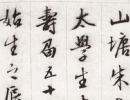 山塘朱
太學生
壽留五十
始生之辰